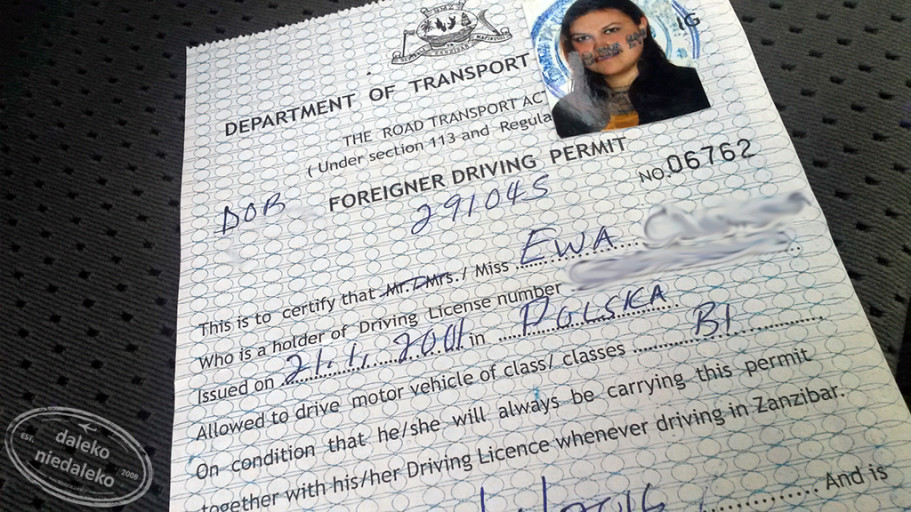 DEPARTMENT OF TRANSPORT
THE ROAD TRANSPORT ACT
( Under section 113 and Regula
FOREIGNER DRIVING PERMIT
NO.06762
DOB
291045
This is to certify that Mr. / Mrs. / Miss EWA
Who is a holder of Driving License number
Issued on 21.1. 2001 in POLSKA
Allowed to drive motor vehicle of class/ classes B1
On condition that he/she will always be carrying this permit
together with his/her Driving Licence whenever driving in Zanzibar.
2016 And is
IG
EST. daleko 2008
niedaleko